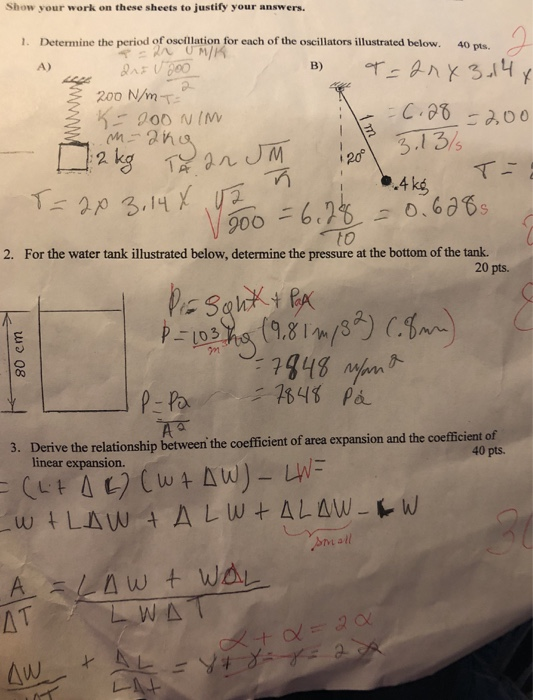 Show your work on these sheets to justify your answers.
1. Determine the period of oscillation for each of the oscillators illustrated below. 40 pts.
2
T = 2π √M/K
A)
2π √200
2
200 N/m T=
K = 200 N/M
m = 2kg
2 kg
T = 2π √M
T = 2π 3.14 X √2
200
= 6.28
10
= 0.628s
B)
T = 2π x 3.14 x
= 6.28
3.13/s
= 200
1 m
20°
.4 kg
T =
2. For the water tank illustrated below, determine the pressure at the bottom of the tank.
20 pts.
8
80 cm
P = 103 kg (9.81 m/s²) (.8m)
m³
= 7848
= 7848 Pa
P = Pa
A²
3. Derive the relationship between the coefficient of area expansion and the coefficient of
linear expansion. 40 pts.
= (L + ΔL) (W + ΔW) - LW =
LW + LΔW + ΔLW + ΔLΔW - LW
small
30
A = LΔW + WΔL
ΔT LWΔT
α + α = 2α
ΔW + ΔL = γ + γ = γ = 2
LΔt